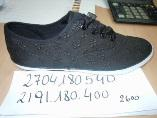 2704.180.540
2191.180.400 2600